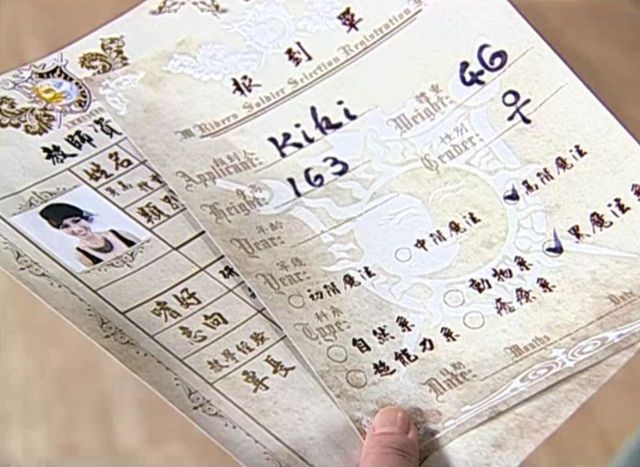 報到單
M Riders Soldier Selection Registration
報到人
Applicant: Kiki
體重
Weight: 46
身高
Height: 163
性別
Gender: 우
年齡
Year:
等級
Year:
初階魔法
中階魔法
高階魔法
科系
Type:
自然系
動物系
黑魔法系
超能力系
治療系
日期
Date:
Months
Date
教師資
姓名
類別
嗜好
志向
教學經驗
專長